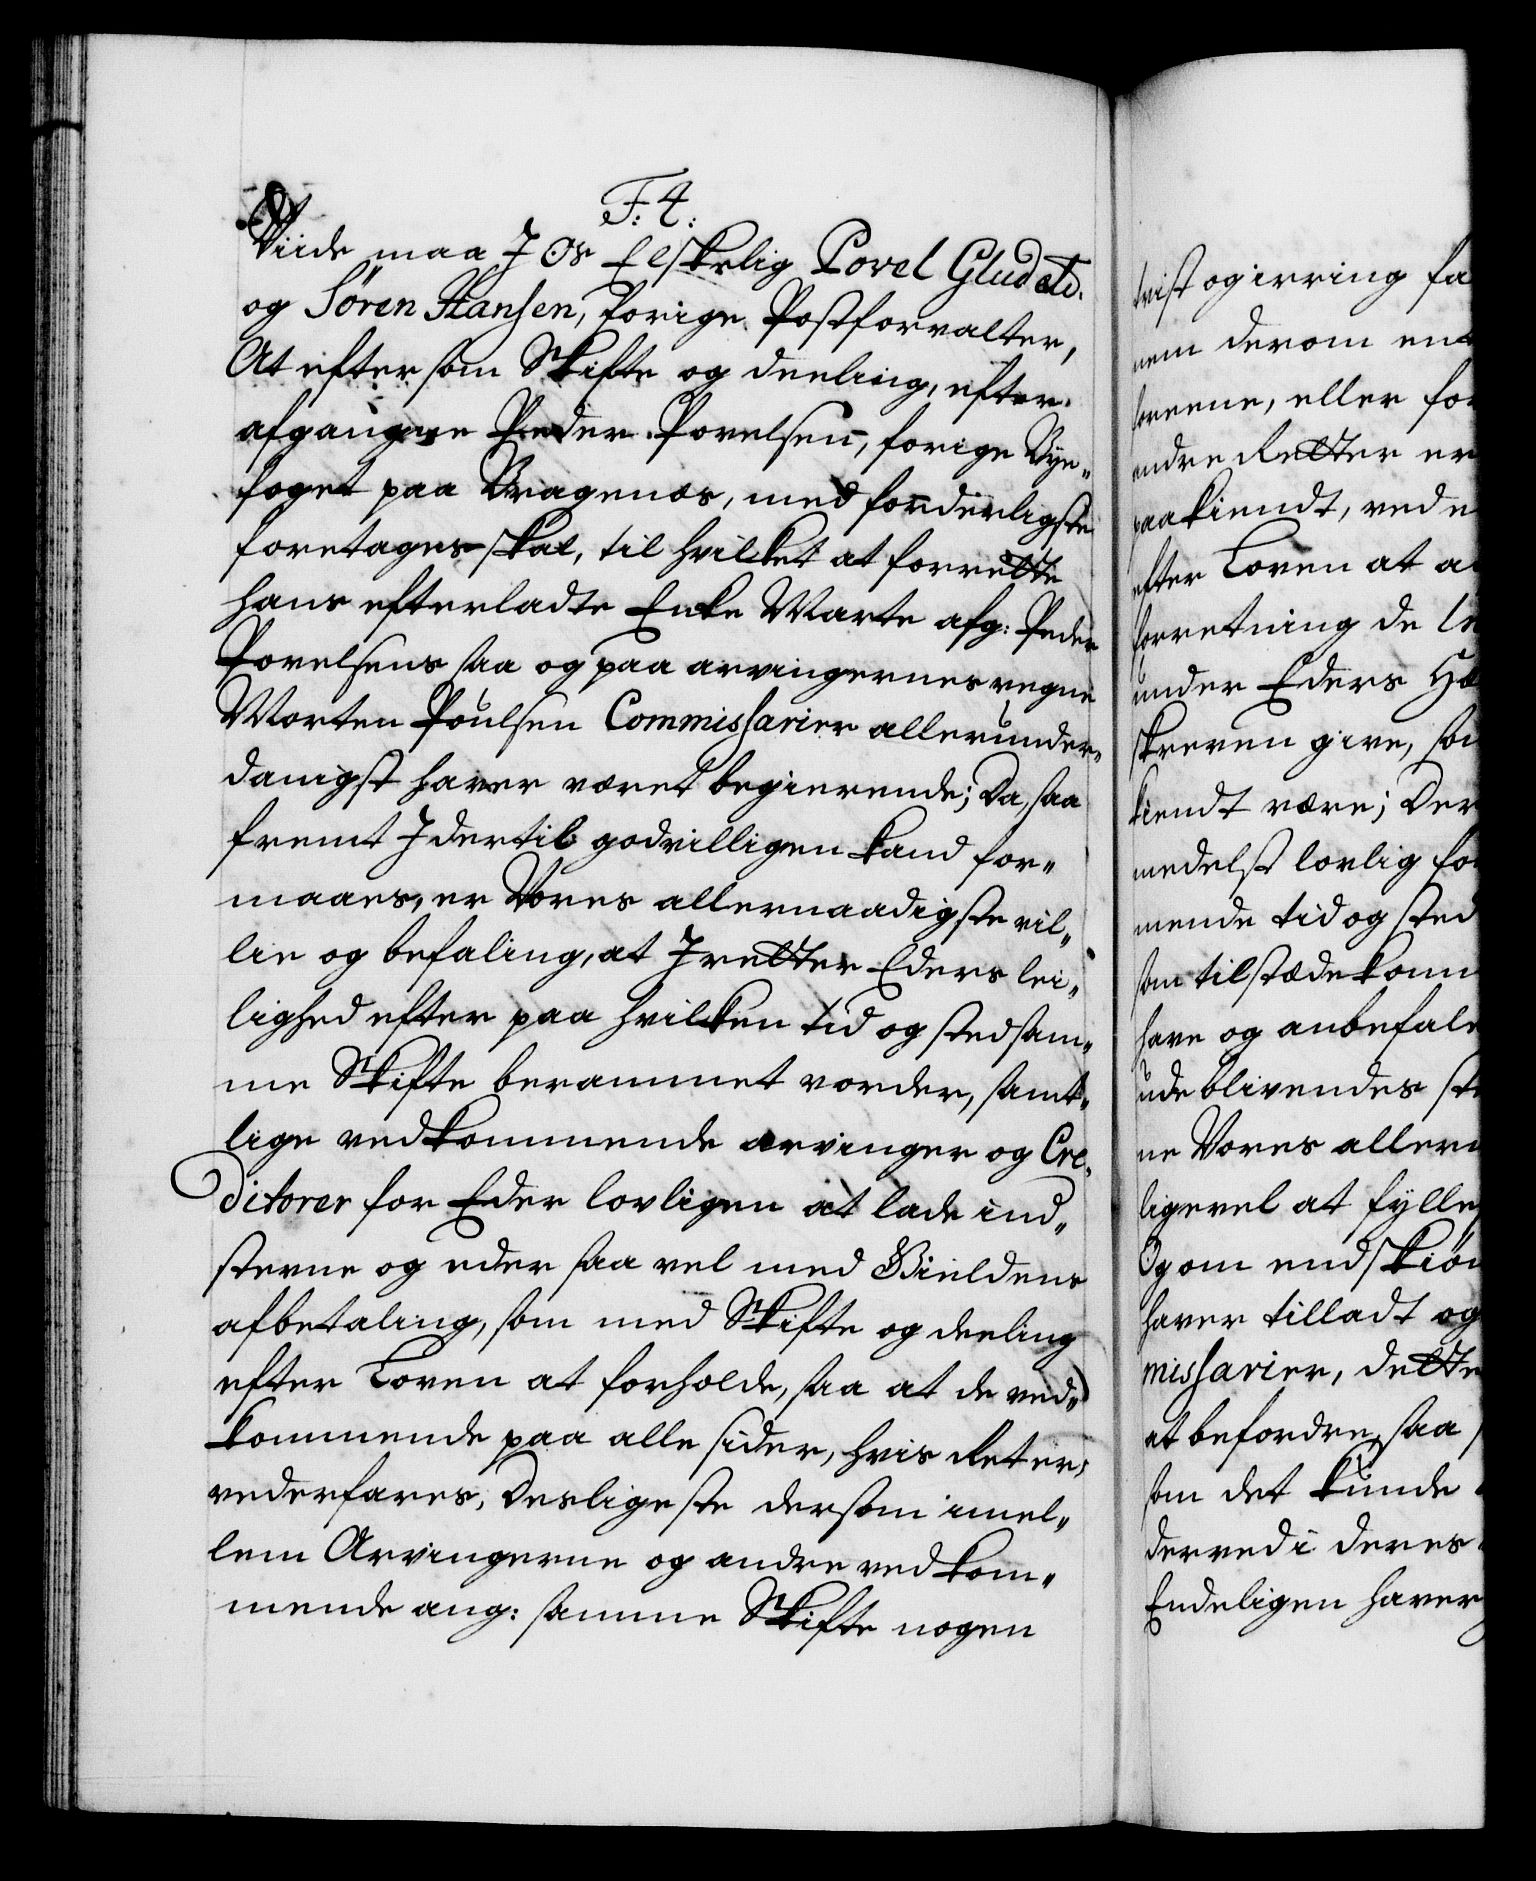 F: 4.
Viide maa J Os Elskelig Povel Glud etc.
og Sören Hansen, forige Postforvalter,
At eftersom Skifte og deeling, efter
afgangne Peder Povelsen, forige Bye-
foget paa Bragenæs, med forderligste
foretages skal, til hvilket at forrette
hans efterladte Enke Marte afg: Peder
Povelsens saa og paa arvingernes vegne
Morten Poulsen Commissarier allerunder-
danigst haver været begierende; Da, saa
fremt J dertil godvilligen kand for-
maaes, er Vores allernaadigste vil-
lie og befaling, at J retter Eders lei-
lighed efter paa hvilken tid og sted sam-
me Skifte berammet vorder, samt-
lige vedkommende arvinger og Cre-
ditorer for Eder lovligen at lade ind-
sterne og eder saa vel med Gieldens
afbetaling, som med Skifte og deeling
efter Loven at forholde, saa at de ved-
kommende paa alle sider, hvis Ret er,
vederfares, Desligeste dersom imel-
lem Arvingerne og andre vedkom-
mende ang: samme Skifte nogen
tvist og irring fa
nem derom ent
verne, eller for
andre Retter er
paakiendt,ved e
efter Loven at a
forretning de
under Eders
skreven give, som
kiendt være; Der
medelst lovlig for
mende tid og sted
som tilstædekomm
have og anbefale
ude blivendes st
ne Vores allern
ligevel at fylle
Og om endskiøn
haver tilladt og
missarier, dette
at befordre, saa
som det kunde
derved i deres
Endeligen haver